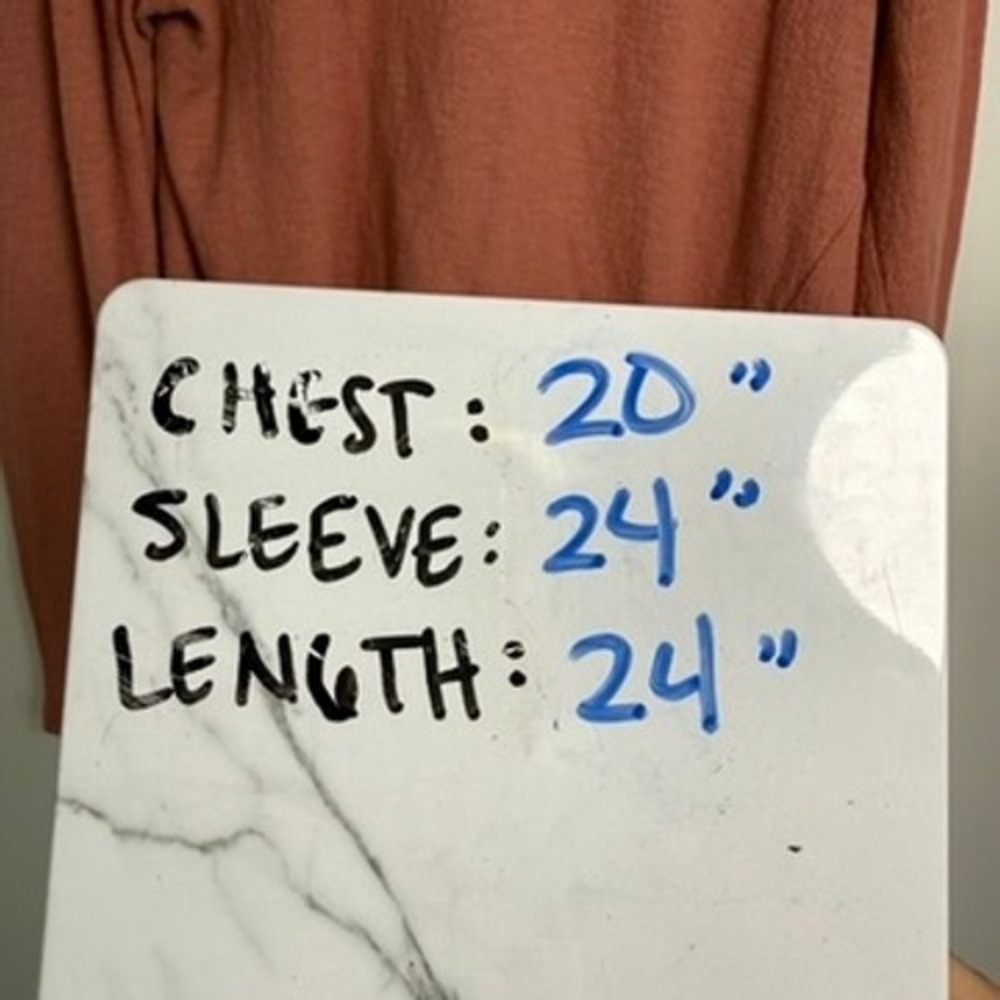 CHEST: 20"
SLEEVE: 24"
LENGTH: 24"